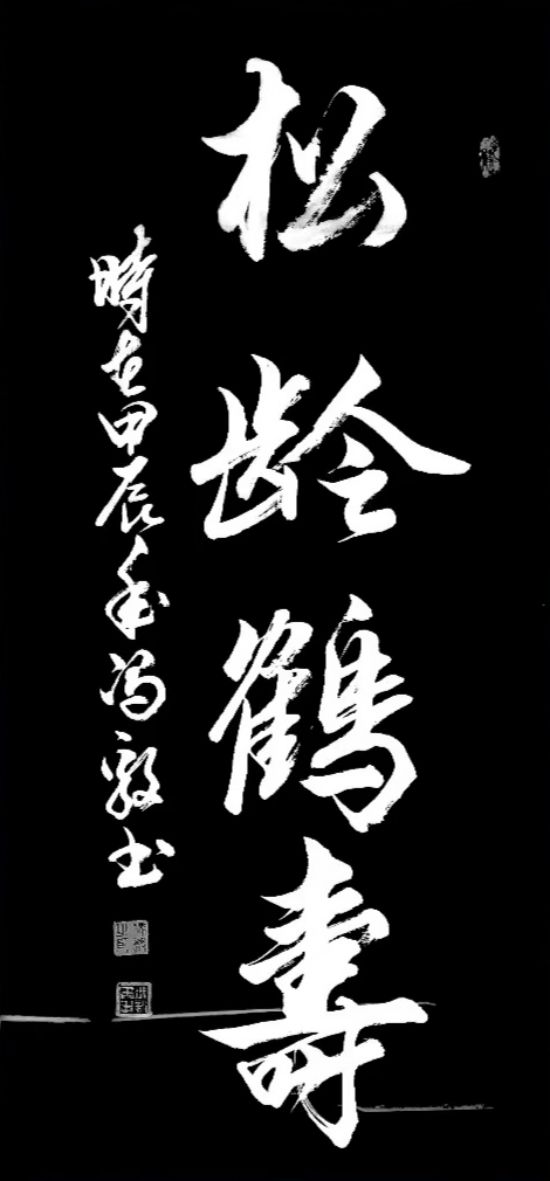 松龄鹤壽
時在甲辰年冯毅书